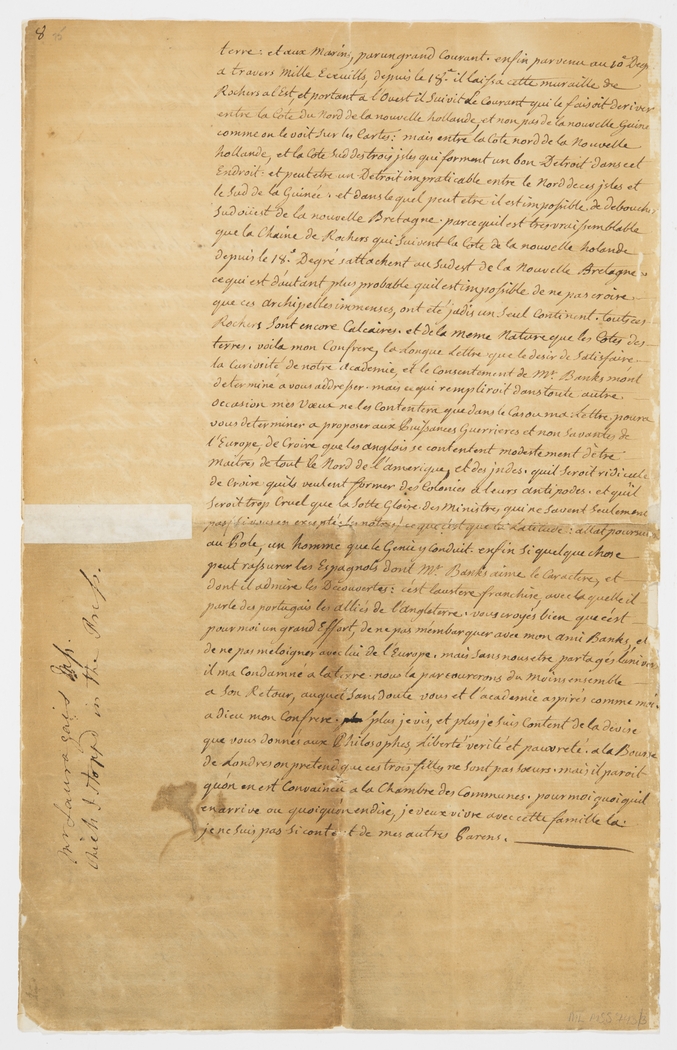 8
terre: et aux Marins, par un grand Courant. enfin parvenu au 10.e Degr
a travers Mille Ecueills, depuis le 18.e il laissa cette muraille de
Rochers a l'Est, et portant a l'Ouest il suivit le Courant qui le faisoit deriver
entre la Cote du Nord de la nouvelle hollande, et non pas de la nouvelle Guine
comme on le voit sur les Cartes: mais entre la Cote nord de la Nouvelle
hollande, et la Cote Sud des trois jsles qui forment un bon Detroit dans cet
Endroit: et peut etre un Detroit impraticable entre le Nord de ces jsles et
le Sud de la Guinée. et dans lequel peut etre il est impossible de debouche
Sud oüest de la nouvelle Bretagne. parce qu'il est tres vraisemblable
que la Chaine de Rochers qui suivent la Cote de la nouvelle holande
depuis le 18.e Degré s'attachent au Sudest de la Nouvelle Bretagne.
ce qui est d'autant plus probable qu'il est impossible de ne pas croire
que ces archipelles immenses, ont eté jadis un seul Continent. tout ces
Rochers sont encore Calcaires. et de la meme Nature que les Cotes des
terres. voila mon Confrere, la longue Lettre que le desir de Satisfaire
la Curiosité de notre academie, et le Consentement de Mr. Banks m'ont
determiné a vous addresser. mais ce qui rempliroit dans toute autre
occasion mes Vœux ne les Contentera que dans le Cas ou ma Lettre poura
vous determiner a proposer aux Puissances Guerrieres et non Savantes de
l'Europe, de Croire que les anglois se contentent modestement d'être
Maitres de tout le Nord de l'amerique, et des jndes. qu'il seroit ridicule
de Croire qu'ils veulent former des Colonies a leurs antipodes. et qu'il
seroit trop Cruel que la Sotte Gloire des Ministres qui ne savent seulement
pas, si vous en exceptés les notres, ce que c'est que la Latitude: allat poursui
au Pole, un homme que le Genie y Conduit. enfin si quelque chose
peut rassurer les Espagnols dont Mr Banks aime le Caractere, et
dont il admire les Decouvertes: c'est l'austere franchise, avec laquelle il
parle des portugais les alliés de l'angleterre. vous croyés bien que c'est
pour moi un grand Effort, de ne pas m'embarquer avec mon ami Banks, et
de ne pas m'eloigner avec lui de l'Europe. mais sans nous etre partagés l'univers
il m'a Condamné a la terre. nous la parcourerons du Moins ensemble
a son Retour, auquel sans doute vous et l'academie aspirés comme moi.
a dieu mon Confrere. plus je vis, et plus je suis Content de la devise
que vous donnés aux Philosophes, Liberté verité et pauvreté. a la Bourse
de Londres on pretend que ces trois filles ne sont pas sœurs. mais il paroit
qu'on en est Convaincu a la Chambre des Communes. pour moi quoi qu'il
en arrive ou quoi qu'on en dise, je veux vivre avec cette famille la.
je ne suis pas si content de mes autres Parens.
Mr Lauragais
which I stopp'd in the Press.